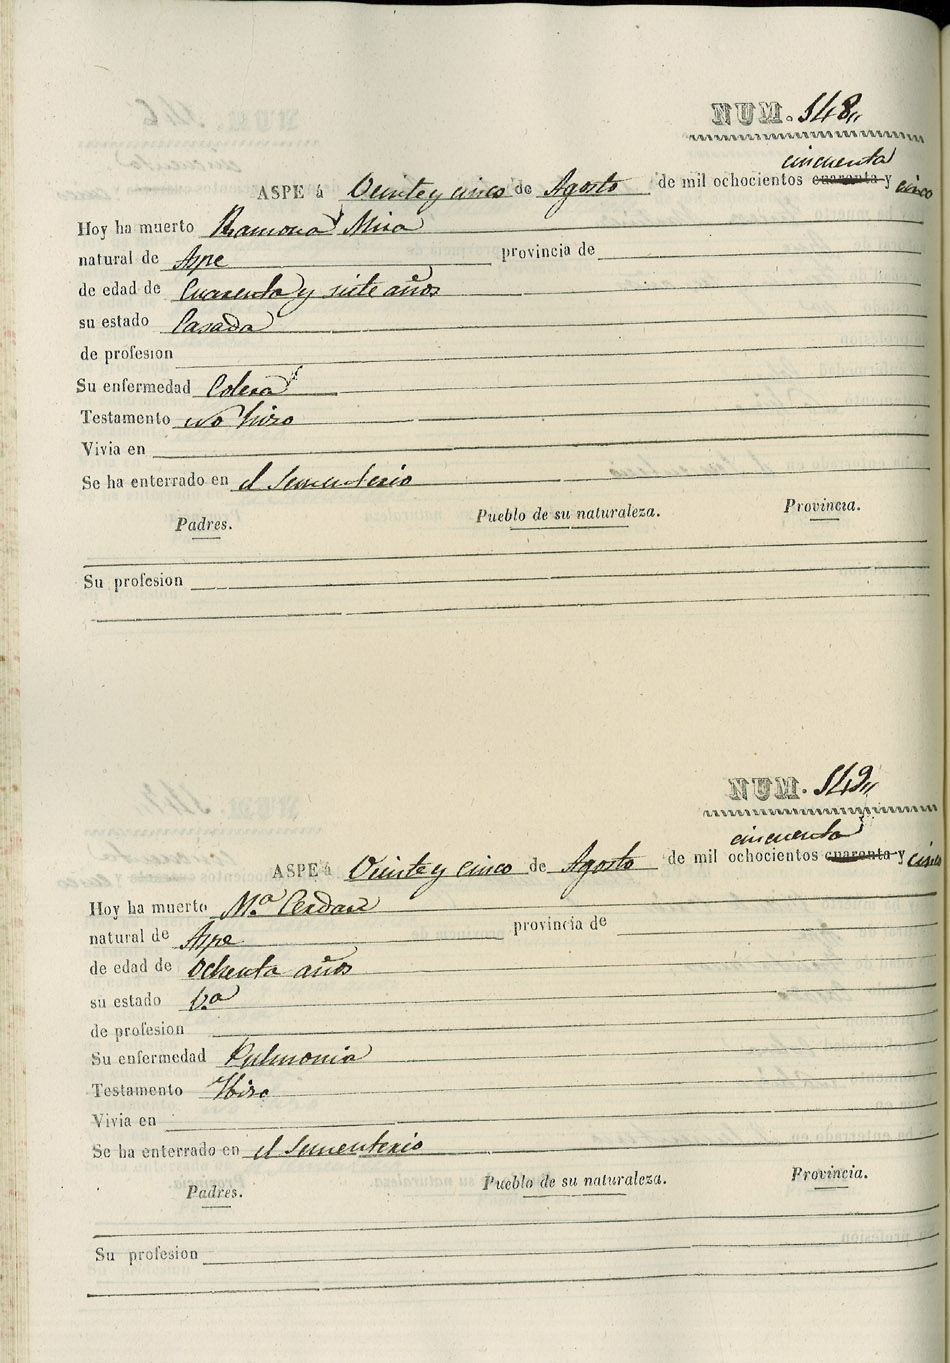 NUM. 148,,
cincuenta
ASPE á Veinte y cinco de Agosto de mil ochocientos cuarenta y cinco
Hoy ha muerto Ramona Mira
natural de Aspe provincia de
de edad de Cuarenta y siete años
su estado Casada
de profesion
Su enfermedad Colera
Testamento no hizo
Vivia en
Se ha enterrado en el Sementerio
Padres. Pueblo de su naturaleza. Provincia.
Su profesion
NUM. 149,,
cincuenta
ASPE á Veinte y cinco de Agosto de mil ochocientos cuarenta y cinco
Hoy ha muerto M.ª Cerdan
natural de Aspe provincia de
de edad de Ochenta años
su estado V.ª
de profesion
Su enfermedad Pulmonia
Testamento Hizo
Vivia en
Se ha enterrado en el Sementerio
Padres. Pueblo de su naturaleza. Provincia.
Su profesion